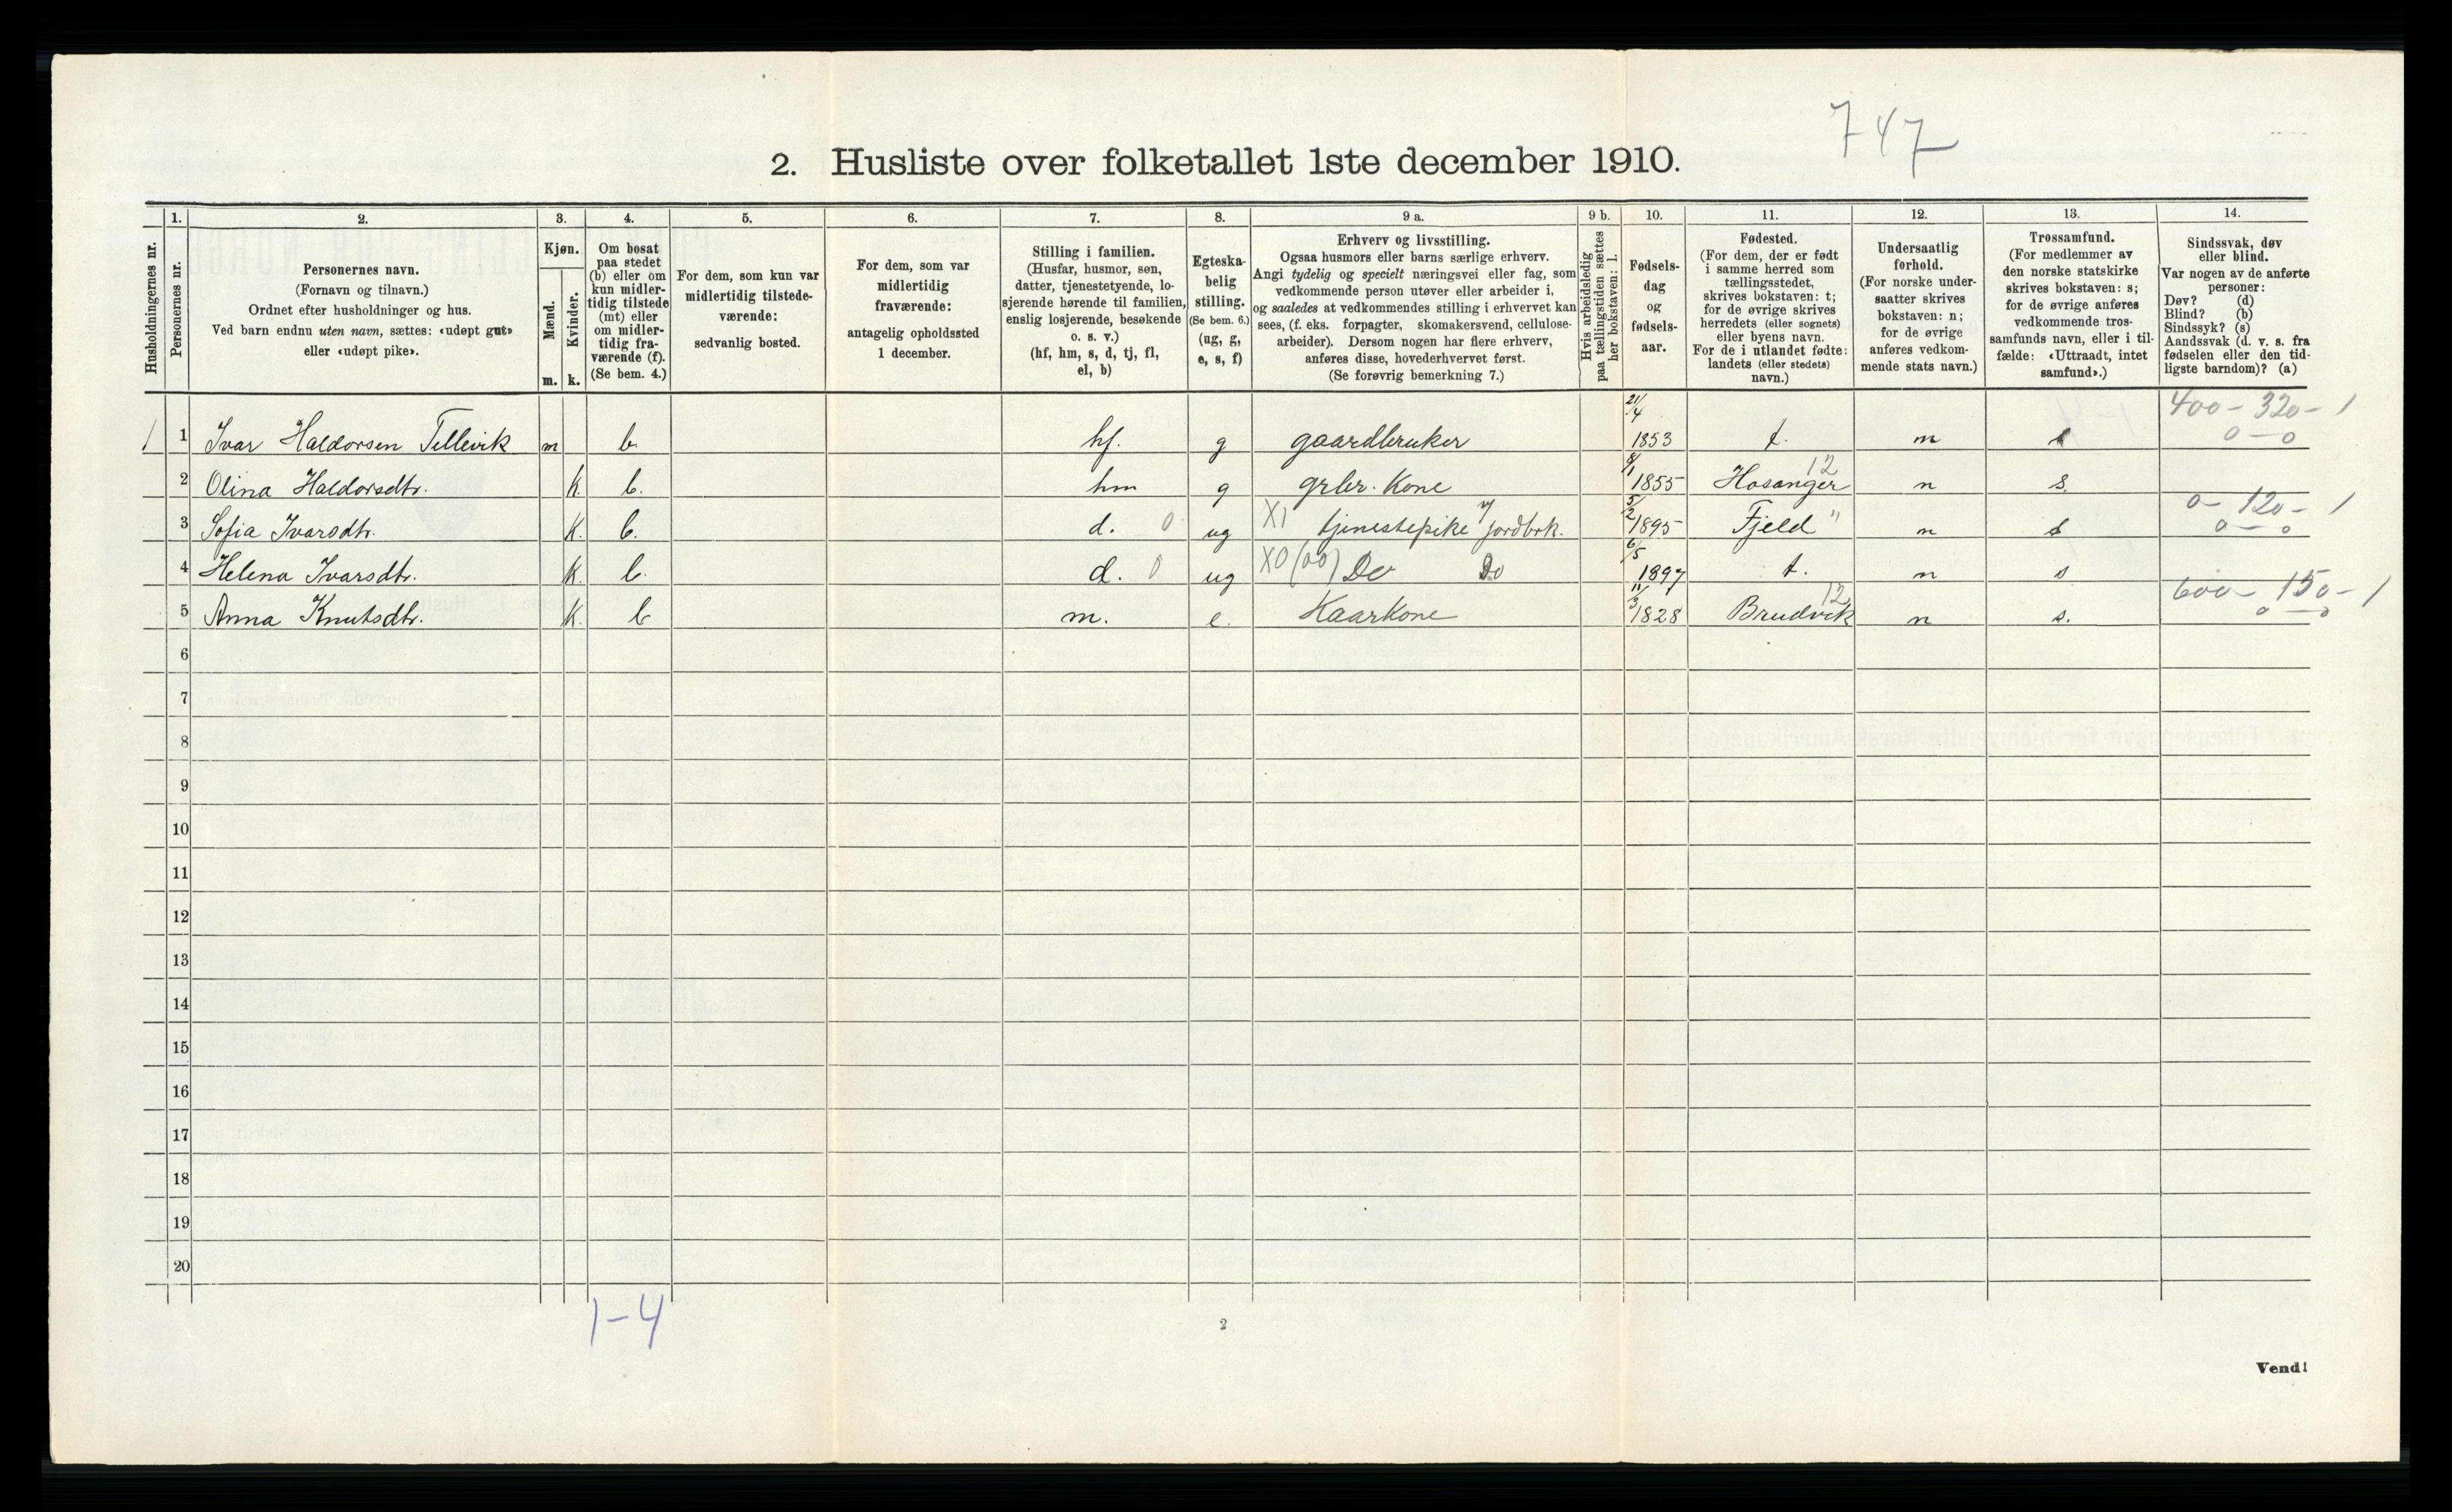 747
2. Husliste over folketallet 1ste december 1910.
Husholdningernes nr.
1.
Personernes nr.
2.
Personernes navn.
(Fornavn og tilnavn.)
Ordnet efter husholdninger og hus.
Ved barn endnu uten navn, sættes: «udøpt gut»
eller «udøpt pike».
3.
Kjøn.
Mænd.
Kvinder.
m. k.
4.
Om bosat
paa stedet
(b) eller om
kun midler-
tidig tilstede
(mt) eller
om midler-
tidig fra-
værende (f).
(Se bem. 4.)
5.
For dem, som kun var
midlertidig tilstede-
værende:
sedvanlig bosted.
6.
For dem, som var
midlertidig
fraværende:
antagelig opholdssted
1 december.
7.
Stilling i familien.
(Husfar, husmor, søn,
datter, tjenestetyende, lo-
sjerende hørende til familien,
enslig losjerende, besøkende
o. s. v.)
(hf, hm, s, d, tj, fl,
el, b)
8.
Egteska-
belig
stilling.
(Se bem. 6.)
(ug, g,
e, s, f)
9 a.
Erhverv og livsstilling.
Ogsaa husmors eller barns særlige erhverv.
Angi tydelig og specielt næringsvei eller fag, som
vedkommende person utøver eller arbeider i,
og saaledes at vedkommendes stilling i erhvervet kan
sees, (f. eks. forpagter, skomakersvend, cellulose-
arbeider). Dersom nogen har flere erhverv,
anføres disse, hovederhvervet først.
(Se forøvrig bemerkning 7.)
9 b.
Hvis arbeidsledig
paa tællingstiden sættes
her bokstaven: l.
10.
Fødsels-
dag
og
fødsels-
aar.
11.
Fødested.
(For dem, der er født
i samme herred som
tællingsstedet,
skrives bokstaven: t;
for de øvrige skrives
herredets (eller sognets)
eller byens navn.
For de i utlandet fødte:
landets (eller stedets)
navn.)
12.
Undersaatlig
forhold.
(For norske under-
saatter skrives
bokstaven: n;
for de øvrige
anføres vedkom-
mende stats navn.)
13.
Trossamfund.
(For medlemmer av
den norske statskirke
skrives bokstaven: s;
for de øvrige anføres
vedkommende tros-
samfunds navn, eller i til-
fælde: «Uttraadt, intet
samfund».)
14.
Sindssvak, døv
eller blind.
Var nogen av de anførte
personer:
Døv? (d)
Blind? (b)
Sindssyk? (s)
Aandssvak (d. v. s. fra
fødselen eller den tid-
ligste barndom)? (a)
1 1 Ivar Haldorsen Tellevik m b. hf. g gaardbruker 21/4 1853 t. n s 400-320-1 0-0
2 Olina Haldorsdtr. k. b. hm g grbr. Kone 8/1 1855 Hosanger 12 n s.
3 Sofia Ivarsdtr. k. b. d. 0 ug XI tjenestepike v/ jordbrk. 5/2 1895 Fjeld " n s 0-120-1 0-0
4 Helena Ivarsdtr. k. b. d. 0 ug XO (00) Do Do 6/5 1897 t. n s
5 Anna Knutsdtr. k. b m. e. Kaarkone 11/3 1828 Brudvik 12 n s. 600-150-1 0-0
6
7
8
9
10
11
12
13
14
15
16
17
18
19
20
1-4
2
Vend!